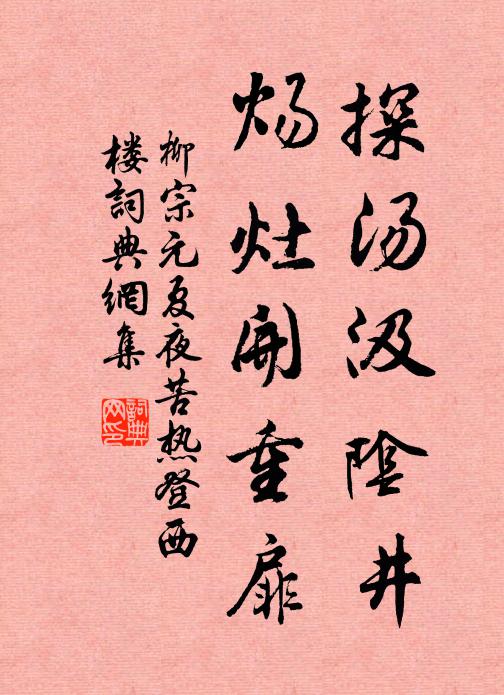 探汤汲陰井
炀灶開重扉
柳宗元夏夜苦热登西
楼詞典網集
詞典
网印